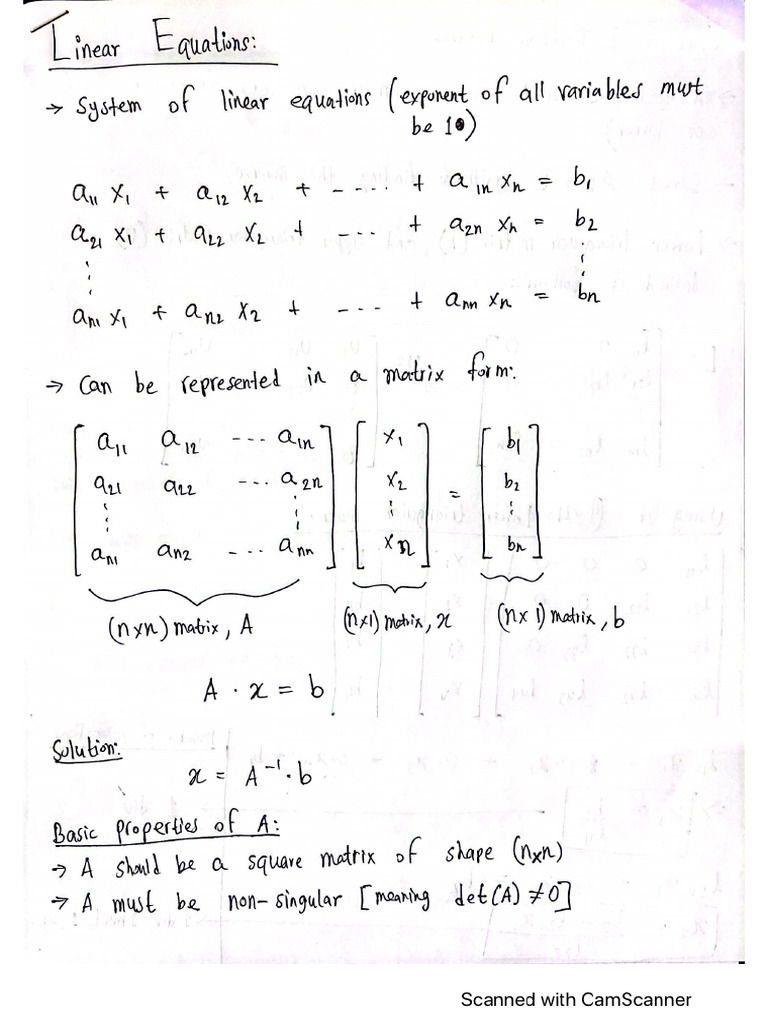 Linear Equations:
→ System of linear equations (exponent of all variables must
be 1)
a₁₁ x₁ + a₁₂ x₂ + - ---- + a₁ₙ xₙ = b₁
a₂₁ x₁ + a₂₂ x₂ + - --- + a₂ₙ xₙ = b₂
⋮ ⋮
aₙ₁ x₁ + aₙ₂ x₂ + - --- + aₙₙ xₙ = bₙ
→ Can be represented in a matrix form:
[ a₁₁ a₁₂ --- a₁ₙ ] [ x₁ ] [ b₁ ]
[ a₂₁ a₂₂ --- a₂ₙ ] [ x₂ ] = [ b₂ ]
[ ⋮ ⋮ ] [ ⋮ ] [ ⋮ ]
[ aₙ₁ aₙ₂ --- aₙₙ ] [ xₙ ] [ bₙ ]
(n×n) matrix, A (n×1) matrix, x (n×1) matrix, b
A · x = b
Solution:
x = A⁻¹· b
Basic properties of A:
→ A should be a square matrix of shape (n×n)
→ A must be non-singular [meaning det(A) ≠ 0]
Scanned with CamScanner